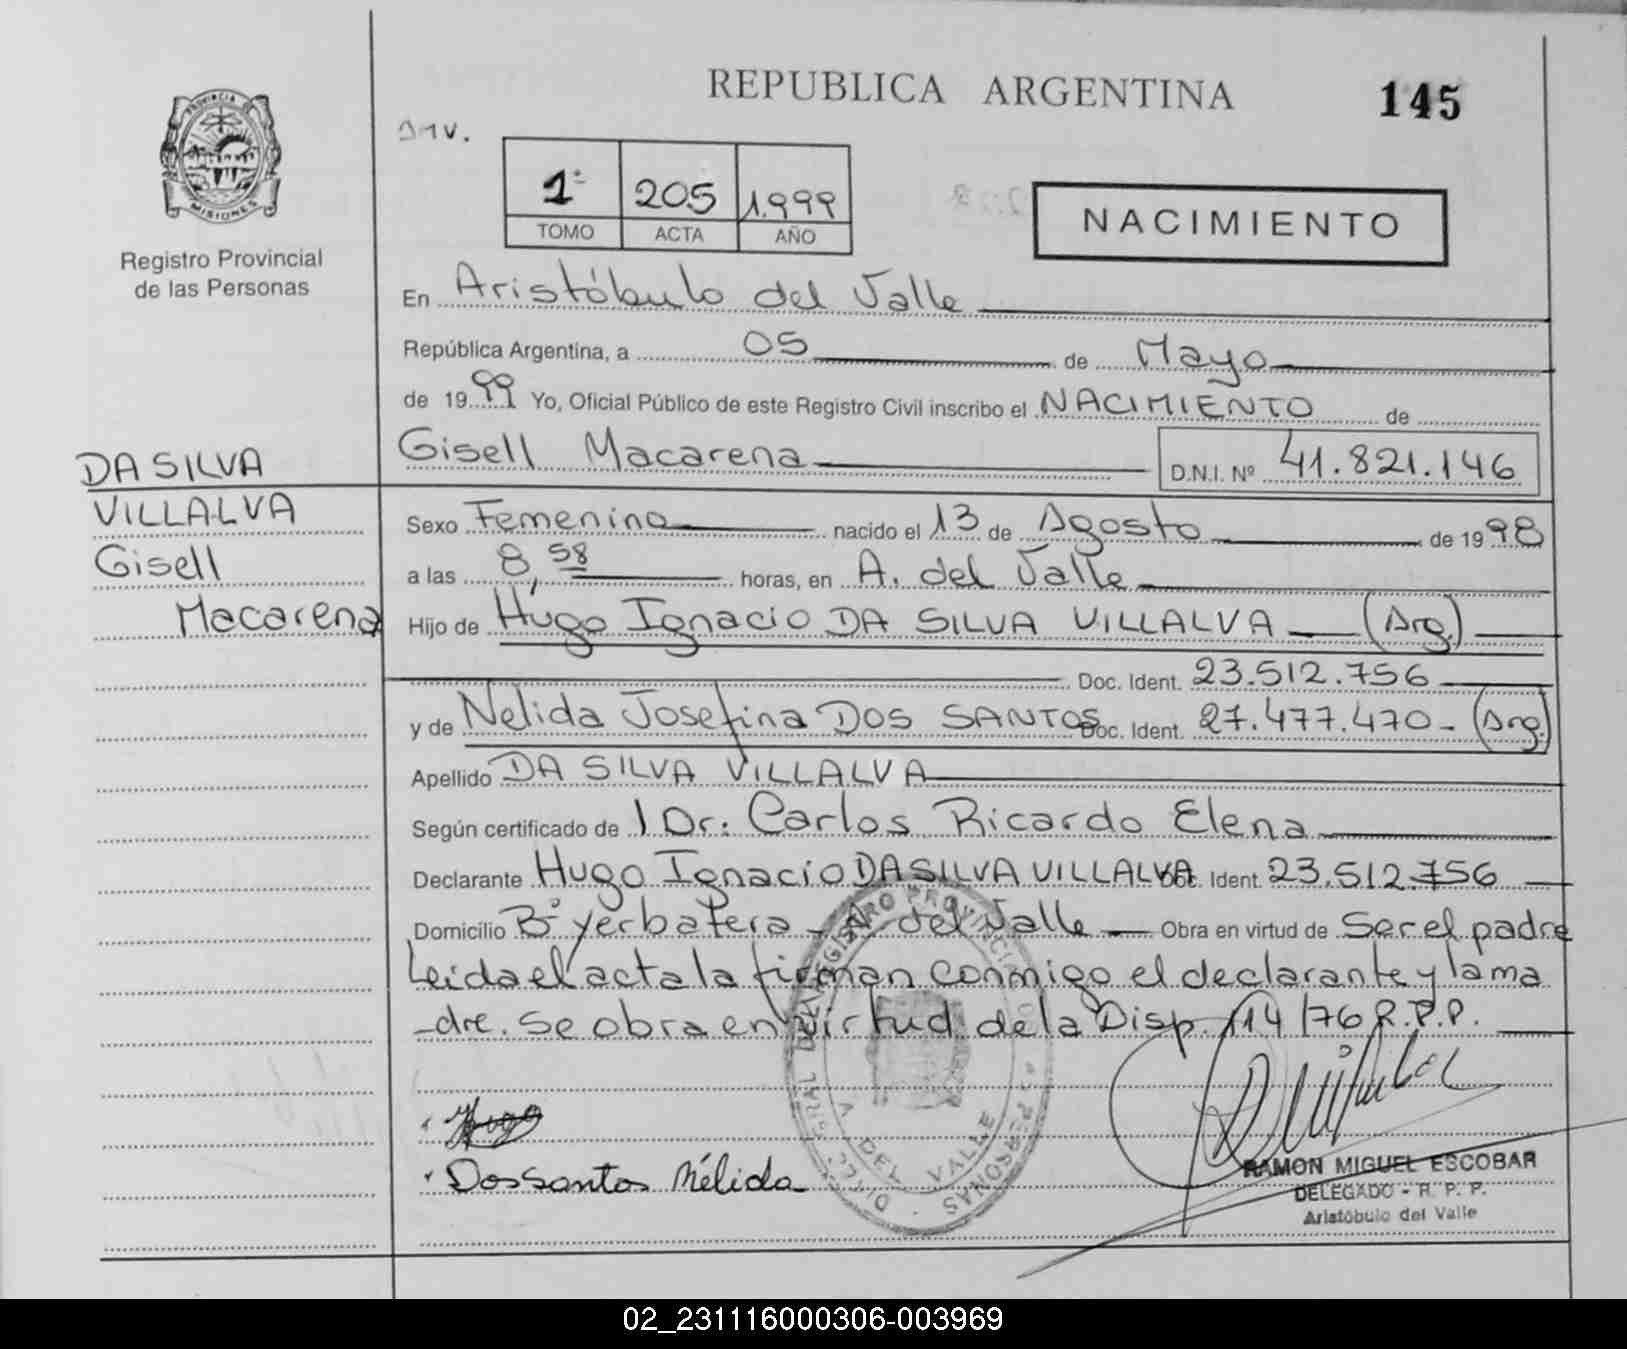 REPUBLICA ARGENTINA
145
PROVINCIA DE
MISIONES
Registro Provincial
de las Personas
1º 205 1.999
TOMO ACTA AÑO
NACIMIENTO
En Aristóbulo del Valle
República Argentina, a 05 de Mayo
de 1999 Yo, Oficial Público de este Registro Civil inscribo el NACIMIENTO de
Gisell Macarena D.N.I. Nº 41.821.146
DA SILVA
VILLALVA
Gisell
Macarena
Sexo Femenino nacido el 13 de Agosto de 1998
a las 8,58 horas, en A. del Valle
Hijo de Hugo Ignacio DA SILVA VILLALVA (Arg.)
Doc. Ident. 23.512.756
y de Nelida Josefina DOS SANTOS Doc. Ident. 27.477.470- (Arg.)
Apellido DA SILVA VILLALVA
Según certificado de Dr: Carlos Ricardo Elena
Declarante Hugo Ignacio DA SILVA VILLALVA Doc. Ident. 23.512.756
Domicilio Bº yerbatera - A. del Valle Obra en virtud de Ser el padre
Leida el acta la firman conmigo el declarante y la ma
-dre. Se obra en virtud de la Disp. 114/76 R.P.P.
Hugo
Dos Santos Nélida
A. DEL VALLE
RAMON MIGUEL ESCOBAR
DELEGADO - R. P. P.
Aristóbulo del Valle
02_231116000306-003969